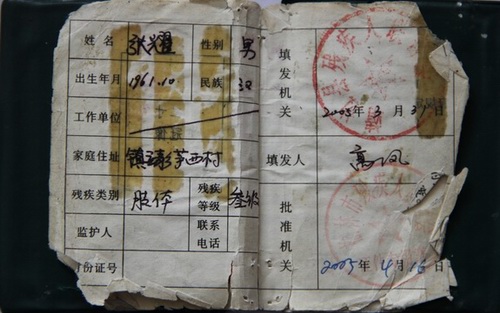 姓名 张耀 性别 男
出生年月 1961.10 民族 汉
工作单位
家庭住址 镇 西村
残疾类别 肢体 残疾等级 叁级
监护人 联系电话
身份证号
填发机关 2005年3月 日
填发人 高凤
批准机关 2005年4月16日